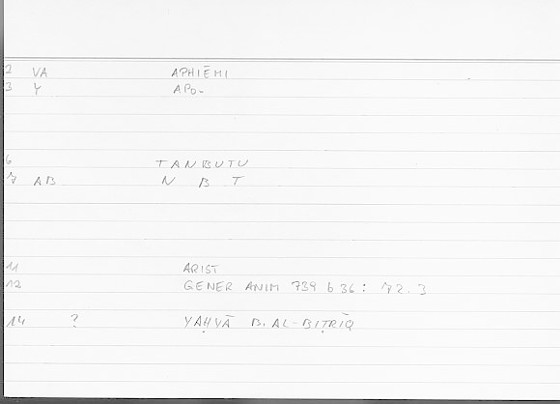 2 VA APHIĒMI
3 Y APO-
6 TANBUTU
7 AB N B T
11 ARIST
12 GENER ANIM 739 b 36: 72.3
14 ? YAḤYĀ B. AL-BIṬRĪQ